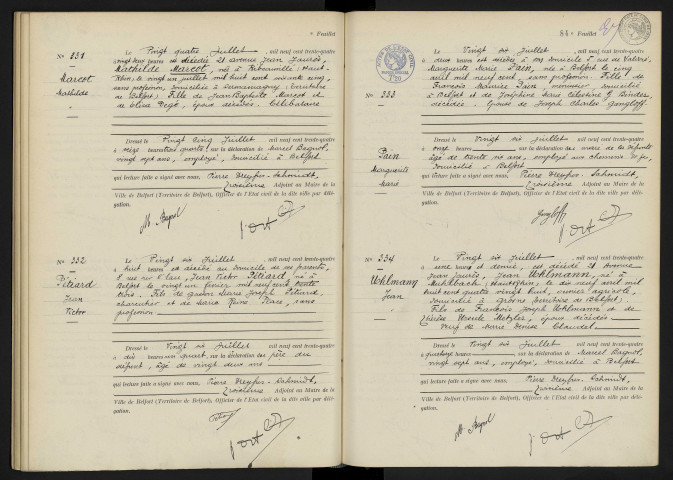 ° Feuillet
N° 331
Marcot
Mathilde
Le Vingt quatre Juillet, mil neuf cent trente-quatre
vingt deux heures est décédée 21 avenue Jean Jaurès,
Mathilde Marcot, née à Ribeauvillé (Haut-
Rhin) le vingt un juillet mil huit cent soixante cinq,
sans profession, domiciliée à Sermamagny (Territoire
de Belfort). Fille de Jean Baptiste Marcot et
de époux décédés. Célibataire
Dressé le Vingt cinq Juillet mil neuf cent trente-quatre
à seize heures un quart, sur la déclaration de Marcel Bagnol,
vingt sept ans, employé, domicilié à Belfort
qui lecture faite a signé avec nous, Pierre Dreyfus-Schmidt,
troisième Adjoint au Maire de la
Ville de Belfort (Territoire de Belfort), Officier de l'Etat civil de la dite ville par délé-
gation.
N° 332
Pétard
Jean
Victor
Le Vingt six Juillet mil neuf cent trente-quatre
à huit heures est décédé au domicile de ses parents,
Jean Victor Pétard, né à
Belfort le vingt un février mil neuf cent trente
trois. Fils de Joseph Pétard,
charcutier et de Maria sans
profession
Dressé le Vingt six Juillet mil neuf cent trente-quatre
à dix heures un quart, sur la déclaration du père du
défunt, âgé de vingt deux ans
qui lecture faite a signé avec nous, Pierre Dreyfus-Schmidt,
troisième Adjoint au Maire de la
Ville de Belfort (Territoire de Belfort), Officier de l'Etat civil de la dite ville par délé-
gation.
84 ° Feuillet
N° 333
Paen
Marguerite
Marie
Le Vingt six Juillet, mil neuf cent trente-quatre
à deux heures est décédée à son domicile
Marguerite Marie Paen, née à Belfort le cinq
avril mil neuf cent, sans profession. Fille de
François Maurice Paen, menuisier, domicilié
à Belfort et de Joséphine Célestine Binder,
décédée. Epouse de Joseph Charles Gangloff
Dressé le vingt six Juillet, mil neuf cent trente-quatre
à onze heures sur la déclaration de la défunte
âgé de trente six ans, employé aux chemins de fer,
domicilié à Belfort
qui lecture faite a signé avec nous, Pierre Dreyfus-Schmidt,
troisième Adjoint au Maire de la
Ville de Belfort (Territoire de Belfort), Officier de l'Etat civil de la dite ville par délé-
gation.
Gangloff
N° 334
Uhlmann
Jean
Le Vingt six Juillet mil neuf cent trente-quatre
à une heure et demie, est décédé 21 Avenue
Jean Jaurès, Jean Uhlmann, né à
Muhlbach (Haut-Rhin), le dix neuf avril mil
huit cent quatre vingt huit, ouvrier agricole,
domicilié à Grosne (Territoire de Belfort).
Fils de François Joseph Uhlmann et de
Thérèse Ursule Metzler, époux décédés
Veuf de Marie Claudel
Dressé le Vingt six Juillet mil neuf cent trente-quatre
à quatorze heures sur la déclaration de Marcel Bagnol,
vingt sept ans, employé, domicilié à Belfort
qui lecture faite a signé avec nous, Pierre Dreyfus-Schmidt,
troisième Adjoint au Maire de la
Ville de Belfort (Territoire de Belfort), Officier de l'Etat civil de la dite ville par délé-
gation.